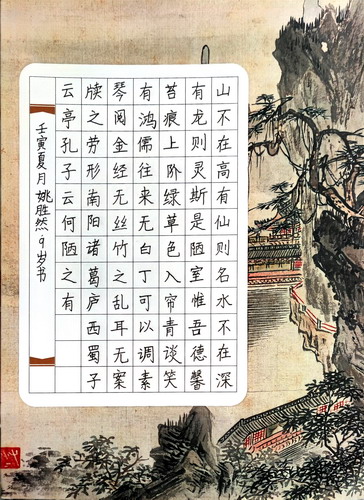 山不在高有仙则名水不在深
有龙则灵斯是陋室惟吾德馨
苔痕上阶绿草色入帘青谈笑
有鸿儒往来无白丁可以调素
琴阅金经无丝竹之乱耳无案
牍之劳形南阳诸葛庐西蜀子
云亭孔子云何陋之有
壬寅夏月姚胜然9岁书